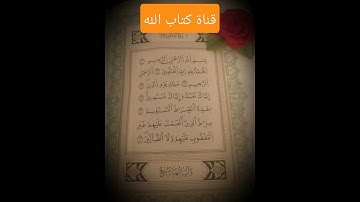 قناة كتاب الله
بِسْمِ اللَّهِ الرَّحْمَٰنِ الرَّحِيمِ ١
الْحَمْدُ لِلَّهِ رَبِّ الْعَالَمِينَ ٢ الرَّحْمَٰنِ
الرَّحِيمِ ٣ مَالِكِ يَوْمِ الدِّينِ ٤
إِيَّاكَ نَعْبُدُ وَإِيَّاكَ نَسْتَعِينُ ٥
اهْدِنَا الصِّرَاطَ الْمُسْتَقِيمَ ٦
صِرَاطَ الَّذِينَ أَنْعَمْتَ عَلَيْهِمْ غَيْرِ
الْمَغْضُوبِ عَلَيْهِمْ وَلَا الضَّالِّينَ ٧